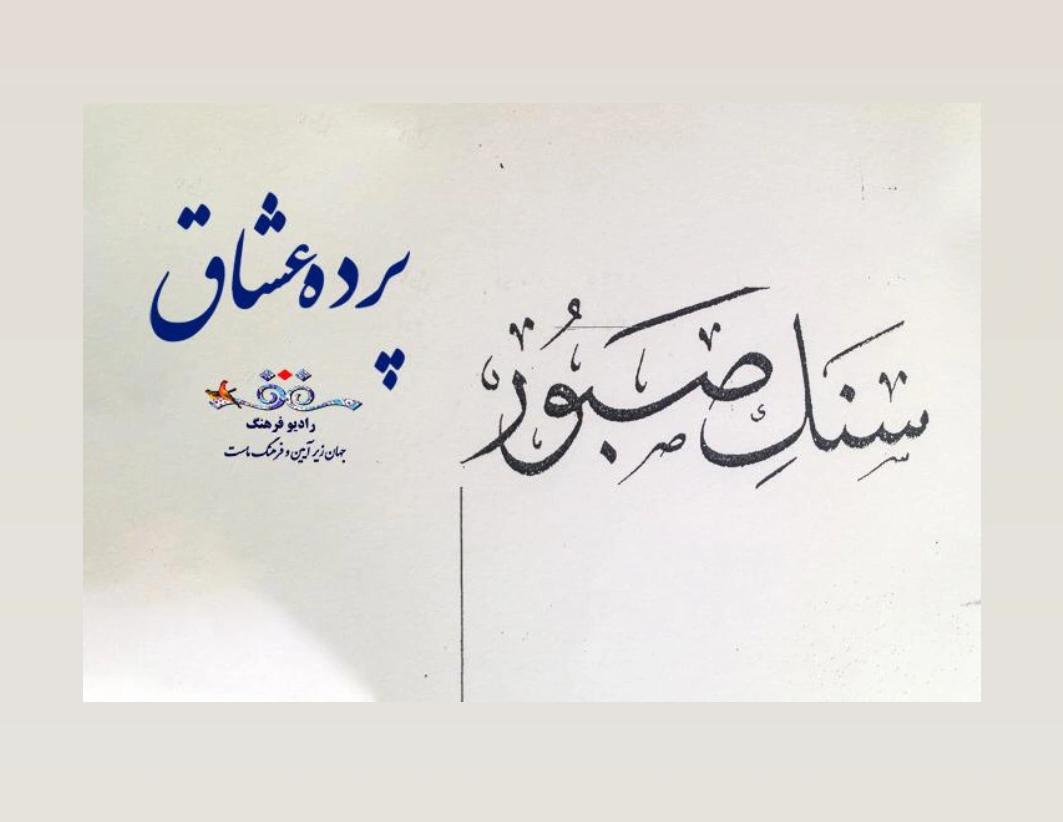 پرده عشاق
رادیو فرهنگ
جهان زیر آیین و فرهنگ ماست
سَنَكِ صَبُور